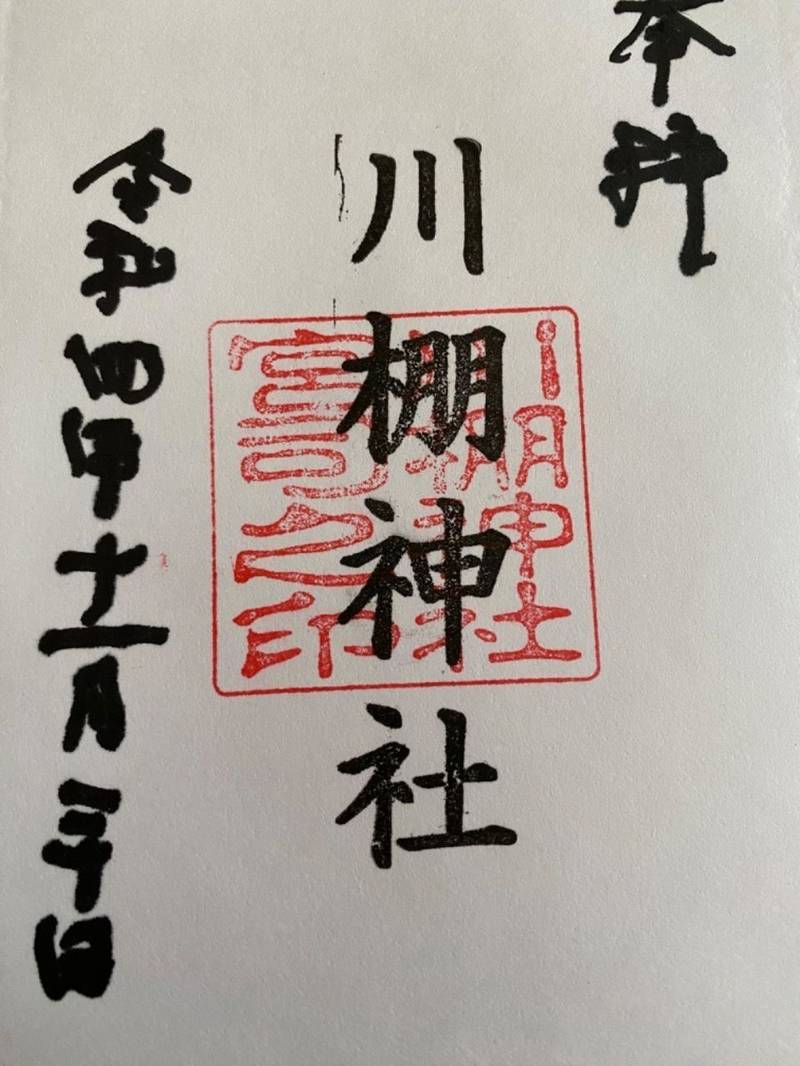 奉拝
川棚神社
川棚神社
宮司之印
令和四年十一月三十日